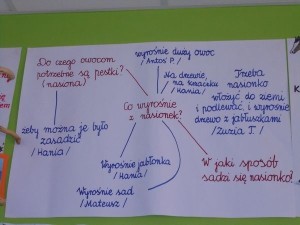 Do czego owocom
potrzebne są pestki?
(nasiona)
wyrośnie duży owoc
/Antoś P./
Na drzewie,
na krzaczku
/Hania/
Trzeba
nasionko
włożyć do ziemi
i podlewać i wyrośnie
drzewo z jabłuszkami
/Zuzia T./
Co wyrośnie
z nasionek?
żeby można je było
zasadzić
/Hania/
Wyrośnie jabłonka
/Hania/
Wyrośnie sad
/Mateusz/
W jaki sposób
sadzi się nasionko!